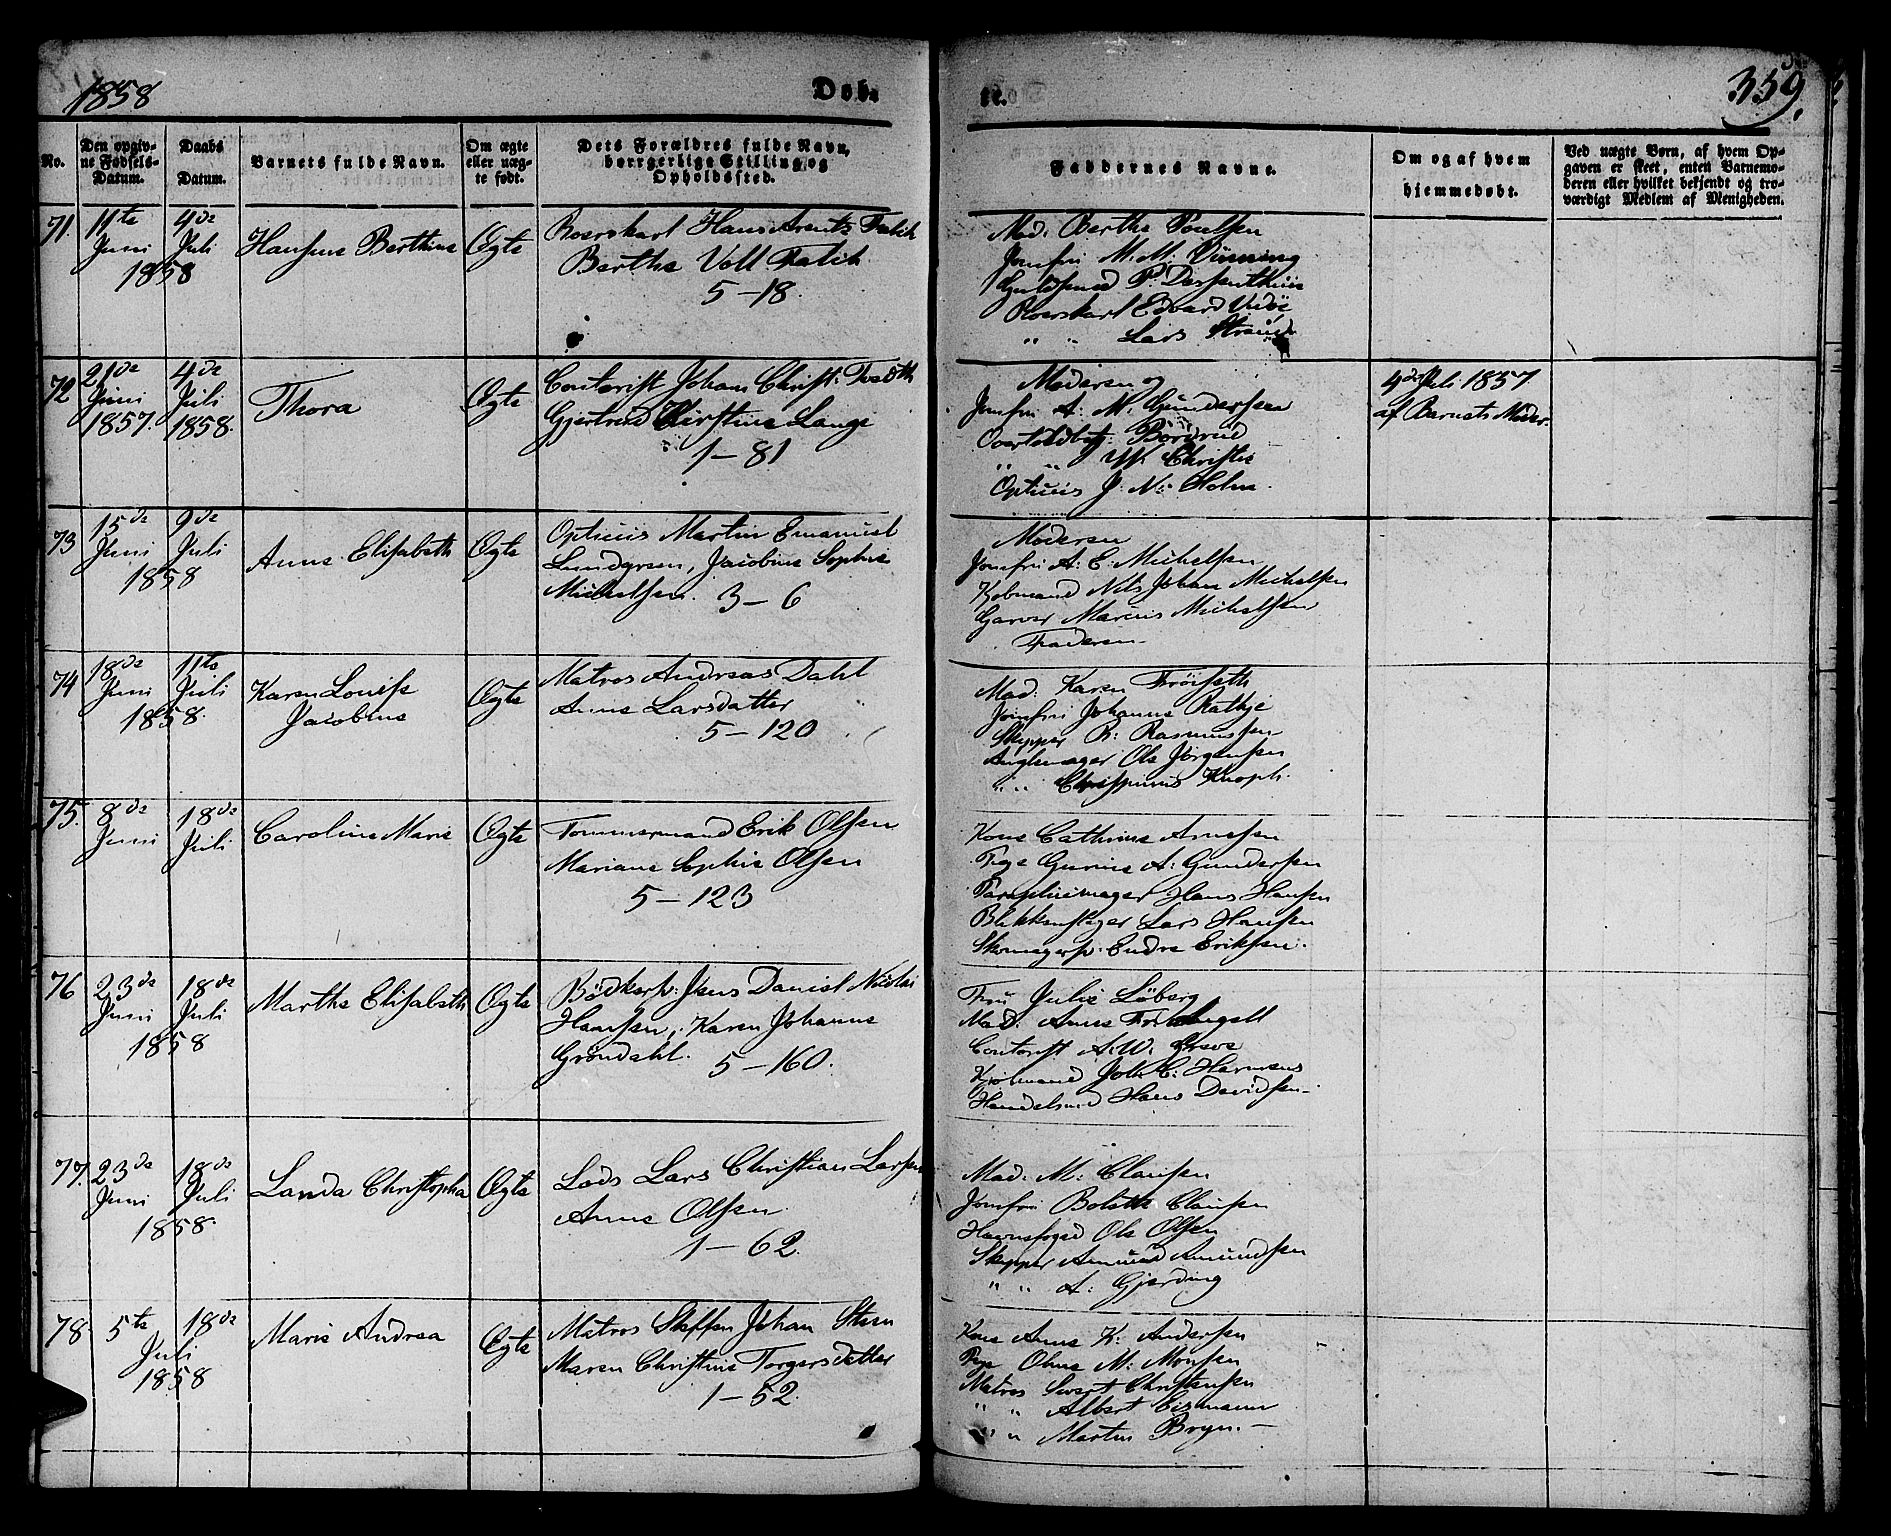 1858
Døb-
te.
359.
No.
Den opgiv-
ne Fødsels-
Datum.
Daabs
Datum.
Barnets fulde Navn.
Om ægte
eller uæg-
te født.
Dets Forældres fulde Navn,
borgerlige Stilling og
Opholdssted.
Faddernes Navne.
Om og af hvem
hjemmedøbt.
Ved uægte Børn, af hvem Op-
gaven er skeet, enten Barnemo-
deren eller hvilket bekjendt og tro-
værdigt Medlem af Menigheden.
71. 11te Juni 4de Juli 1858
Hansine Berthine
Ægte
Roerskarl Hans Arentz Falch
Berthe Voll Falch
5-18.
Mad. Berthe Poulsen
Jomfru M. M. Vinning
Guldsmed P.
Roerskarl Edvard Vidøe
" " Lars
72 21de Juni 1857. 4de Juli 1858.
Thora
Ægte
Contorist Johan Christ: Tvedth
Gjertrud Kirstine Lange
1-81
Moderen og
Jomfru A. M. Gundersen
Overtoldbetj.
" " W. Christie
Opticus J. N. Holm.
4de Juli 1857
af Barnets Moder.
73 15de Juni 9de Juli 1858
Anne Elisabeth
Ægte
Opticus Martin Emanuel
Lundgreen, Jacobine Sophie
Michelsen. 3-6
Moderen
Jomfru A. E. Michelsen
Kobmand Nils Johan Michelsen
Garver Marcus Michelsen
Faderen
74 18de Juni 11te Juli 1858.
Karen Louise
Jacobine
Ægte
Matros Andreas Dahl
Anne Larsdatter
5-120
Mad. Karen Frøiseth
Jomfru Johanne Ratkje
Skipper R. Rasmussen
Ole Jørgensen
" " Knoph.
75. 8de Juni 18de Juli
Caroline Marie
Ægte
Tømmermand Erik Olsen
Mariane Sophie Olsen
5-123
Kone Cathrine Arnesen
Pige Gurine A. Gundersen
Parapluimager Hans Hansen
Blikkenslager Lars Hansen
Skomagersv. Endre Eriksen.
76 23de Juni 18de Juli 1858
Marthe Elisabeth
Ægte
Bødkersv: Jens Daniel Nicolai
Hansen, Karen Johanne
Grøndahl. 5-160.
Fru Julie Løberg
Mad. Anne
Contorist A. W. Greve
Kjøbmand Joh. C. Harmens
Handelsmd Hans Davidsen
77. 23de Juni 18de Juli 1858.
Lauda Christopha
Ægte
Lods Lars Christian Larsen
Anne Olsen.
1-62.
Mad. M. Clausen
Jomfru Bolette Clausen
Havnefoged Ole Olsen
Skipper Amund Amundsen
" " A. Gjerding
78. 5te Juli 18de 1858
Marie Andrea
Ægte
Matros Steffen Johan Steen
Maren Christine Torgersdatter
1-52.
Kone Anne K. Andersen
Pige Oline M. Monsen
Matros Sivert Christensen
" " Albert Eismann
" " Martin Bryn.